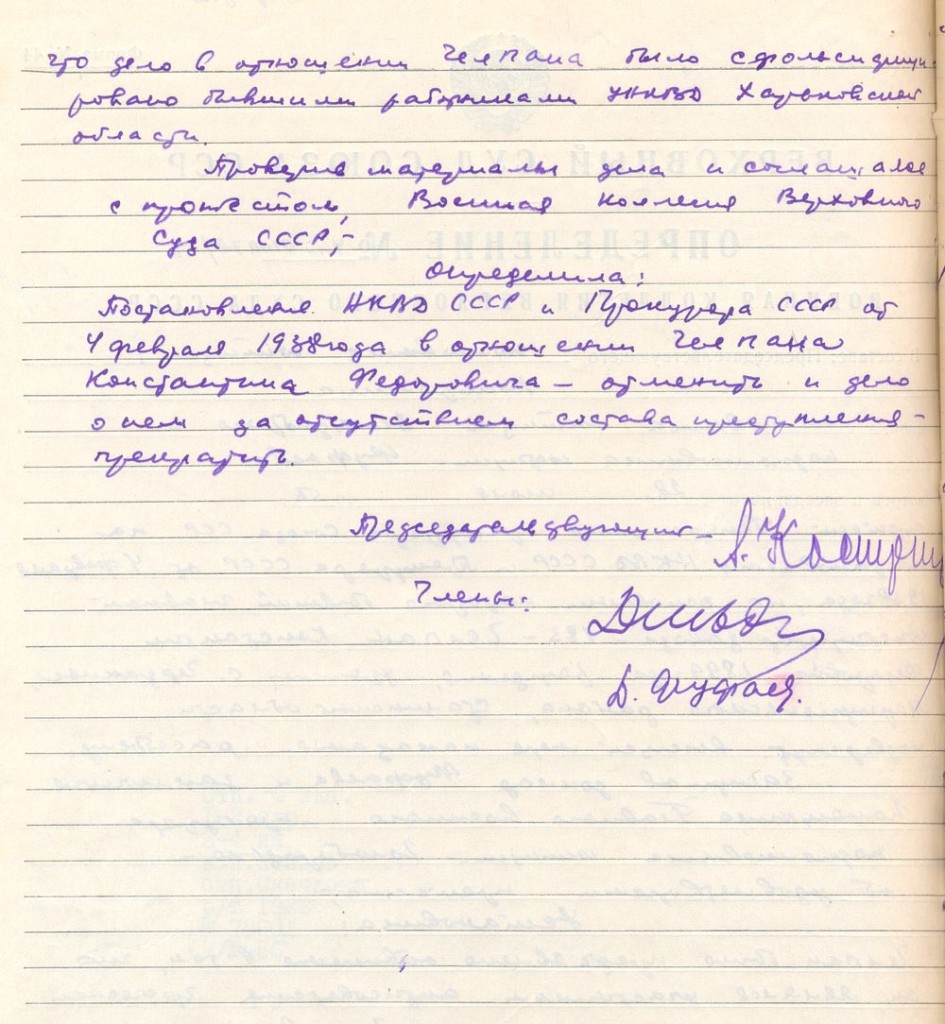 что дело в отношении Челпана было сфольсифици-
ровано бывшими работниками УНКВД Харьковской
области.
Проверив материалы дела и соглашаясь
с протестом, Военная коллегия Верховного
Суда СССР,-
определила:
Постановление НКВД СССР и Прокурора СССР от
4 февраля 1938 года в отношении Челпана
Константина Федоровича – отменить и дело
о нем за отсутствием состава преступления –
прекратить.
Педседательствующий – А. Костром
Члены: